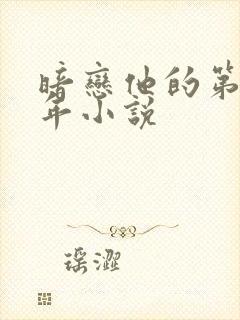 暗戀他的第
年小說
瑤澀